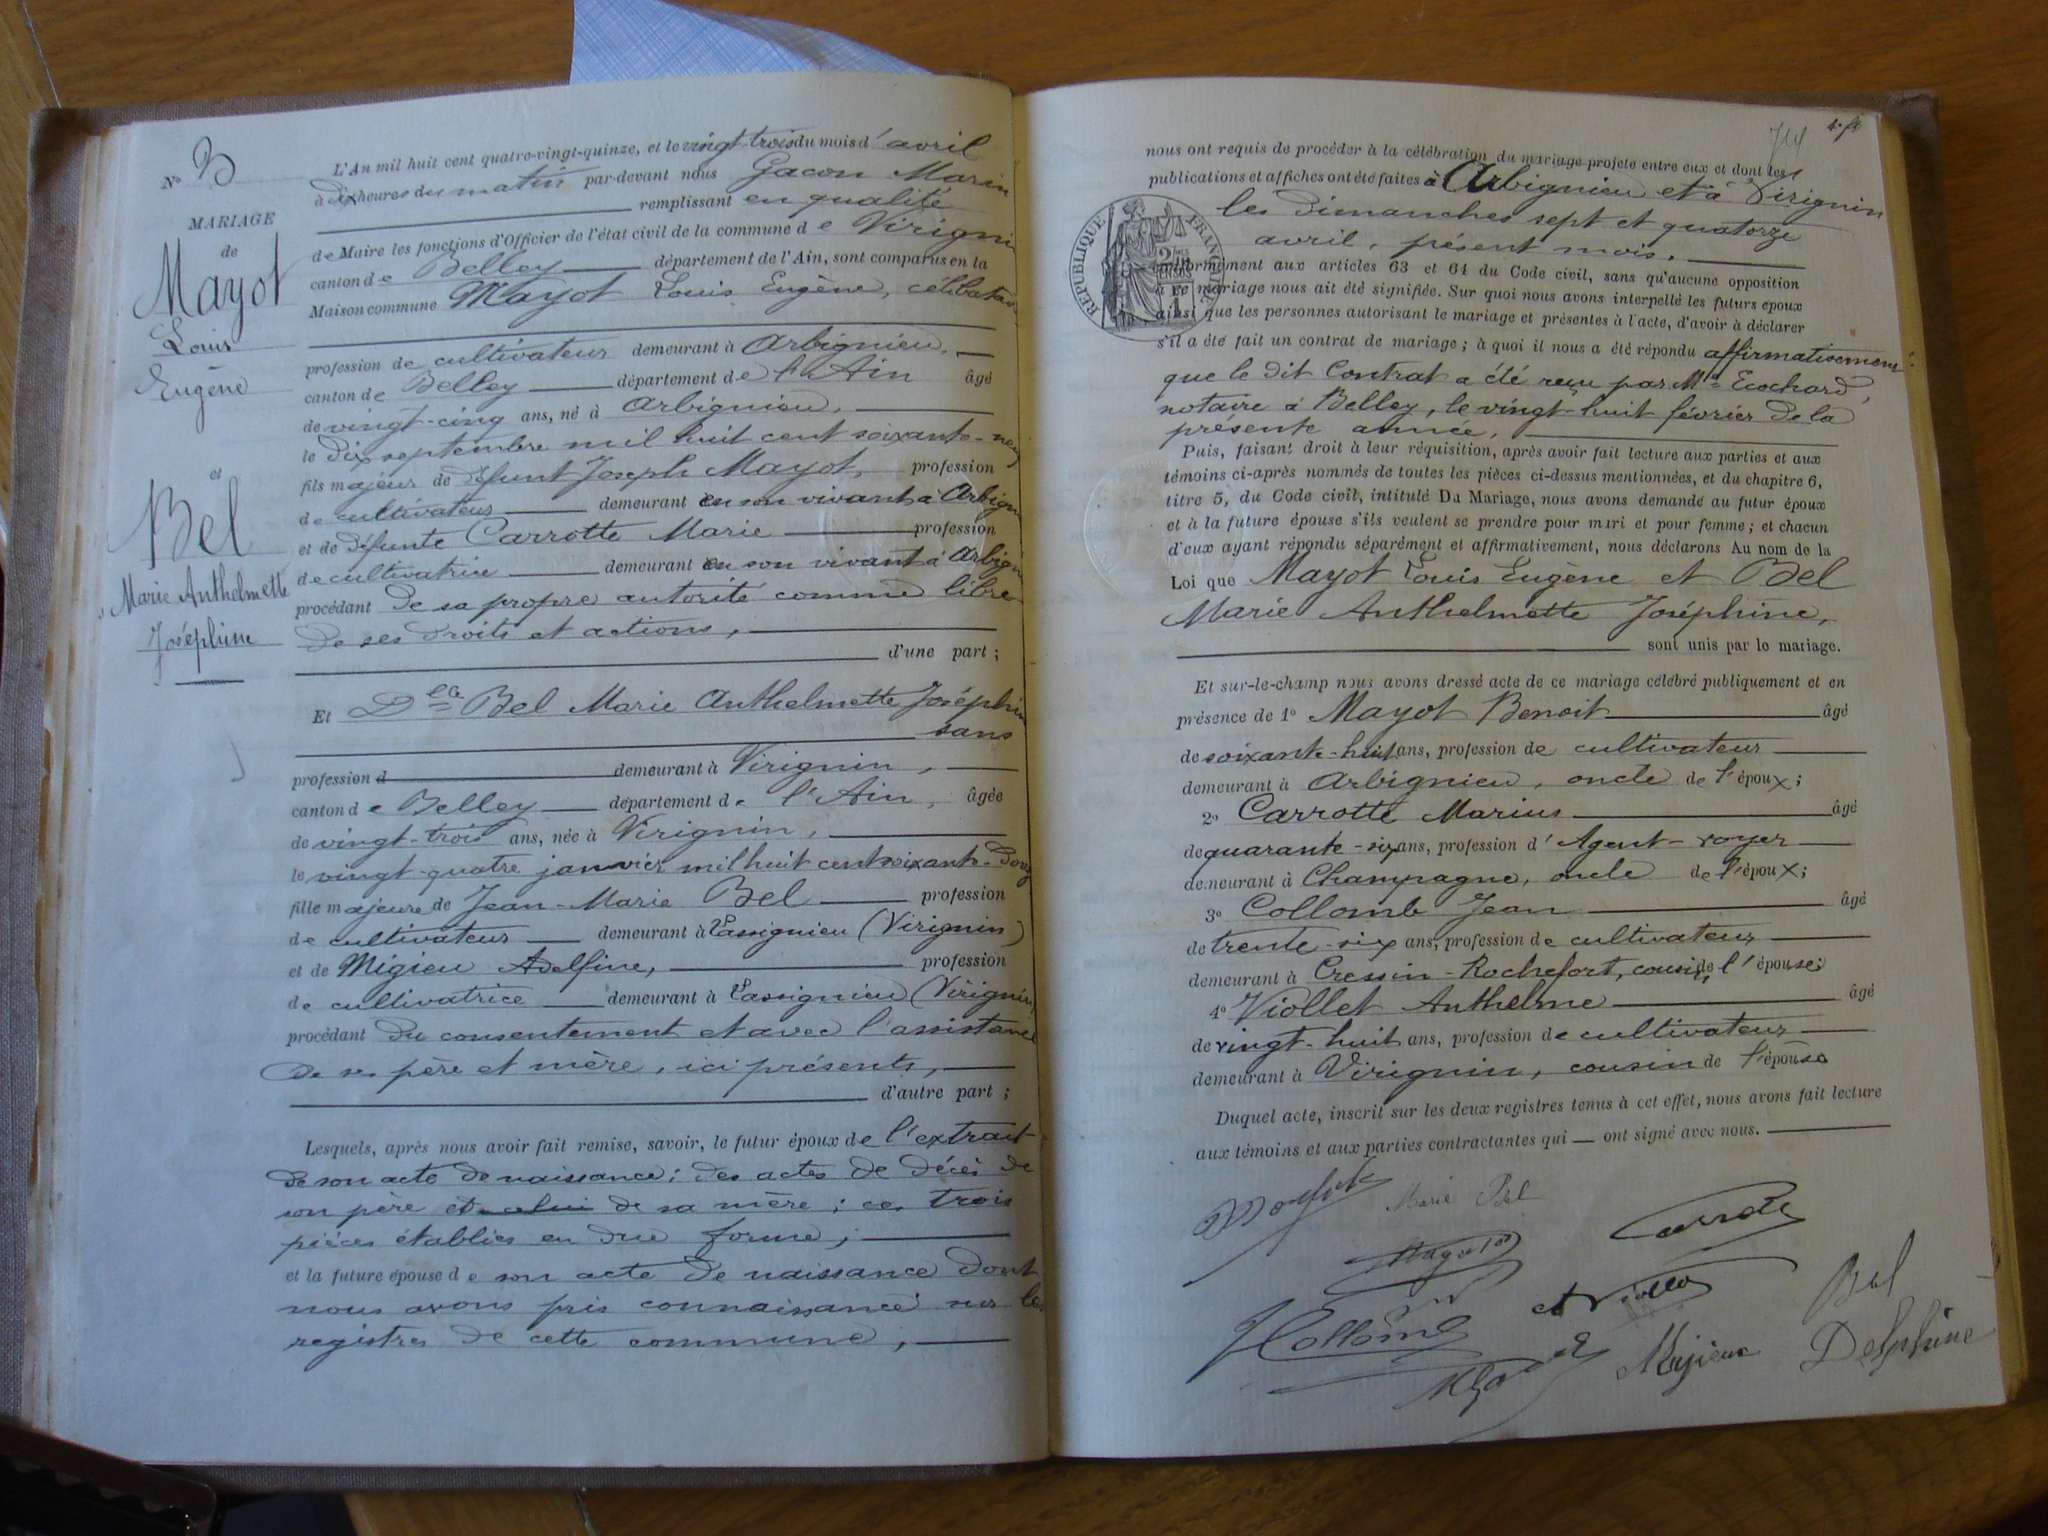 N° 3
MARIAGE
de
Mayot
Louis
Eugène
et
Bel
Marie Anthelmette
Joséphine
L'An mil huit cent quatre-vingt-quinze, et le vingt-trois du mois d'avril
à dix heures du matin par-devant nous Gacon Marin
remplissant en qualité
de Maire les fonctions d'Officier de l'état civil de la commune de Virignin
canton de Belley département de l'Ain, sont comparus en la
Maison commune Mayot Louis Eugène, célibataire
profession de cultivateur demeurant à Arbignieu,
canton de Belley département de l'Ain âgé
de vingt-cinq ans, né à Arbignieu,
le dix septembre mil huit cent soixante-neuf
fils majeur de défunt Joseph Mayot, profession
de cultivateur demeurant en son vivant à Arbign
et de défunte Carrotte Marie profession
de cultivatrice demeurant en son vivant à Arbign
procédant de sa propre autorité comme libre
de ses droits et actions,
d'une part ;
Et Dlle Bel Marie Anthelmette Joséphine
sans
profession d demeurant à Virignin,
canton de Belley département de l'Ain, âgée
de vingt-trois ans, née à Virignin,
le vingt-quatre janvier mil huit cent soixante-douze
fille majeure de Jean-Marie Bel profession
de cultivateur demeurant à Lassignieu (Virignin)
et de Migieu Adelfine, profession
de cultivatrice demeurant à Lassignieu (Virignin)
procédant du consentement et avec l'assistance
de ses père et mère, ici présents,
d'autre part ;
Lesquels, après nous avoir fait remise, savoir, le futur époux de l'extrait
de son acte de naissance ; des actes de décès de
son père et celui de sa mère ; ces trois
pièces établies en due forme ;
et la future épouse de son acte de naissance dont
nous avons pris connaissance sur les
registres de cette commune,
nous ont requis de procéder à la célébration du mariage projeté entre eux et dont les
publications et affiches ont été faites à Arbignieu et à Virignin
les dimanches sept et quatorze
avril, présent mois,
conformément aux articles 63 et 64 du Code civil, sans qu'aucune opposition
à ce mariage nous ait été signifiée. Sur quoi nous avons interpellé les futurs époux
ainsi que les personnes autorisant le mariage et présentes à l'acte, d'avoir à déclarer
s'il a été fait un contrat de mariage ; à quoi il nous a été répondu affirmativement
que le dit contrat a été reçu par Me Ecochard,
notaire à Belley, le vingt-huit février de la
présente année,
Puis, faisant droit à leur réquisition, après avoir fait lecture aux parties et aux
témoins ci-après nommés de toutes les pièces ci-dessus mentionnées, et du chapitre 6,
titre 5, du Code civil, intitulé Du Mariage, nous avons demandé au futur époux
et à la future épouse s'ils veulent se prendre pour mari et pour femme ; et chacun
d'eux ayant répondu séparément et affirmativement, nous déclarons Au nom de la
Loi que Mayot Louis Eugène et Bel
Marie Anthelmette Joséphine,
sont unis par le mariage.
Et sur-le-champ nous avons dressé acte de ce mariage célébré publiquement et en
présence de 1° Mayot Benoit âgé
de soixante-huit ans, profession de cultivateur
demeurant à Arbignieu, oncle de l'époux ;
2° Carrotte Marius âgé
de quarante-six ans, profession d'Agent-voyer
demeurant à Champagne, oncle de l'époux ;
3° Collomb Jean âgé
de trente-six ans, profession de cultivateur
demeurant à Cressin-Rochefort, cousin de l'épouse ;
4° Viollet Anthelme âgé
de vingt-huit ans, profession de cultivateur
demeurant à Virignin, cousin de l'épouse
Duquel acte, inscrit sur les deux registres tenus à cet effet, nous avons fait lecture
aux témoins et aux parties contractantes qui ont signé avec nous.
Marie Bel
Carrotte
Collomb
Viollet
Bel
Migieux Delphine
RÉPUBLIQUE FRANÇAISE